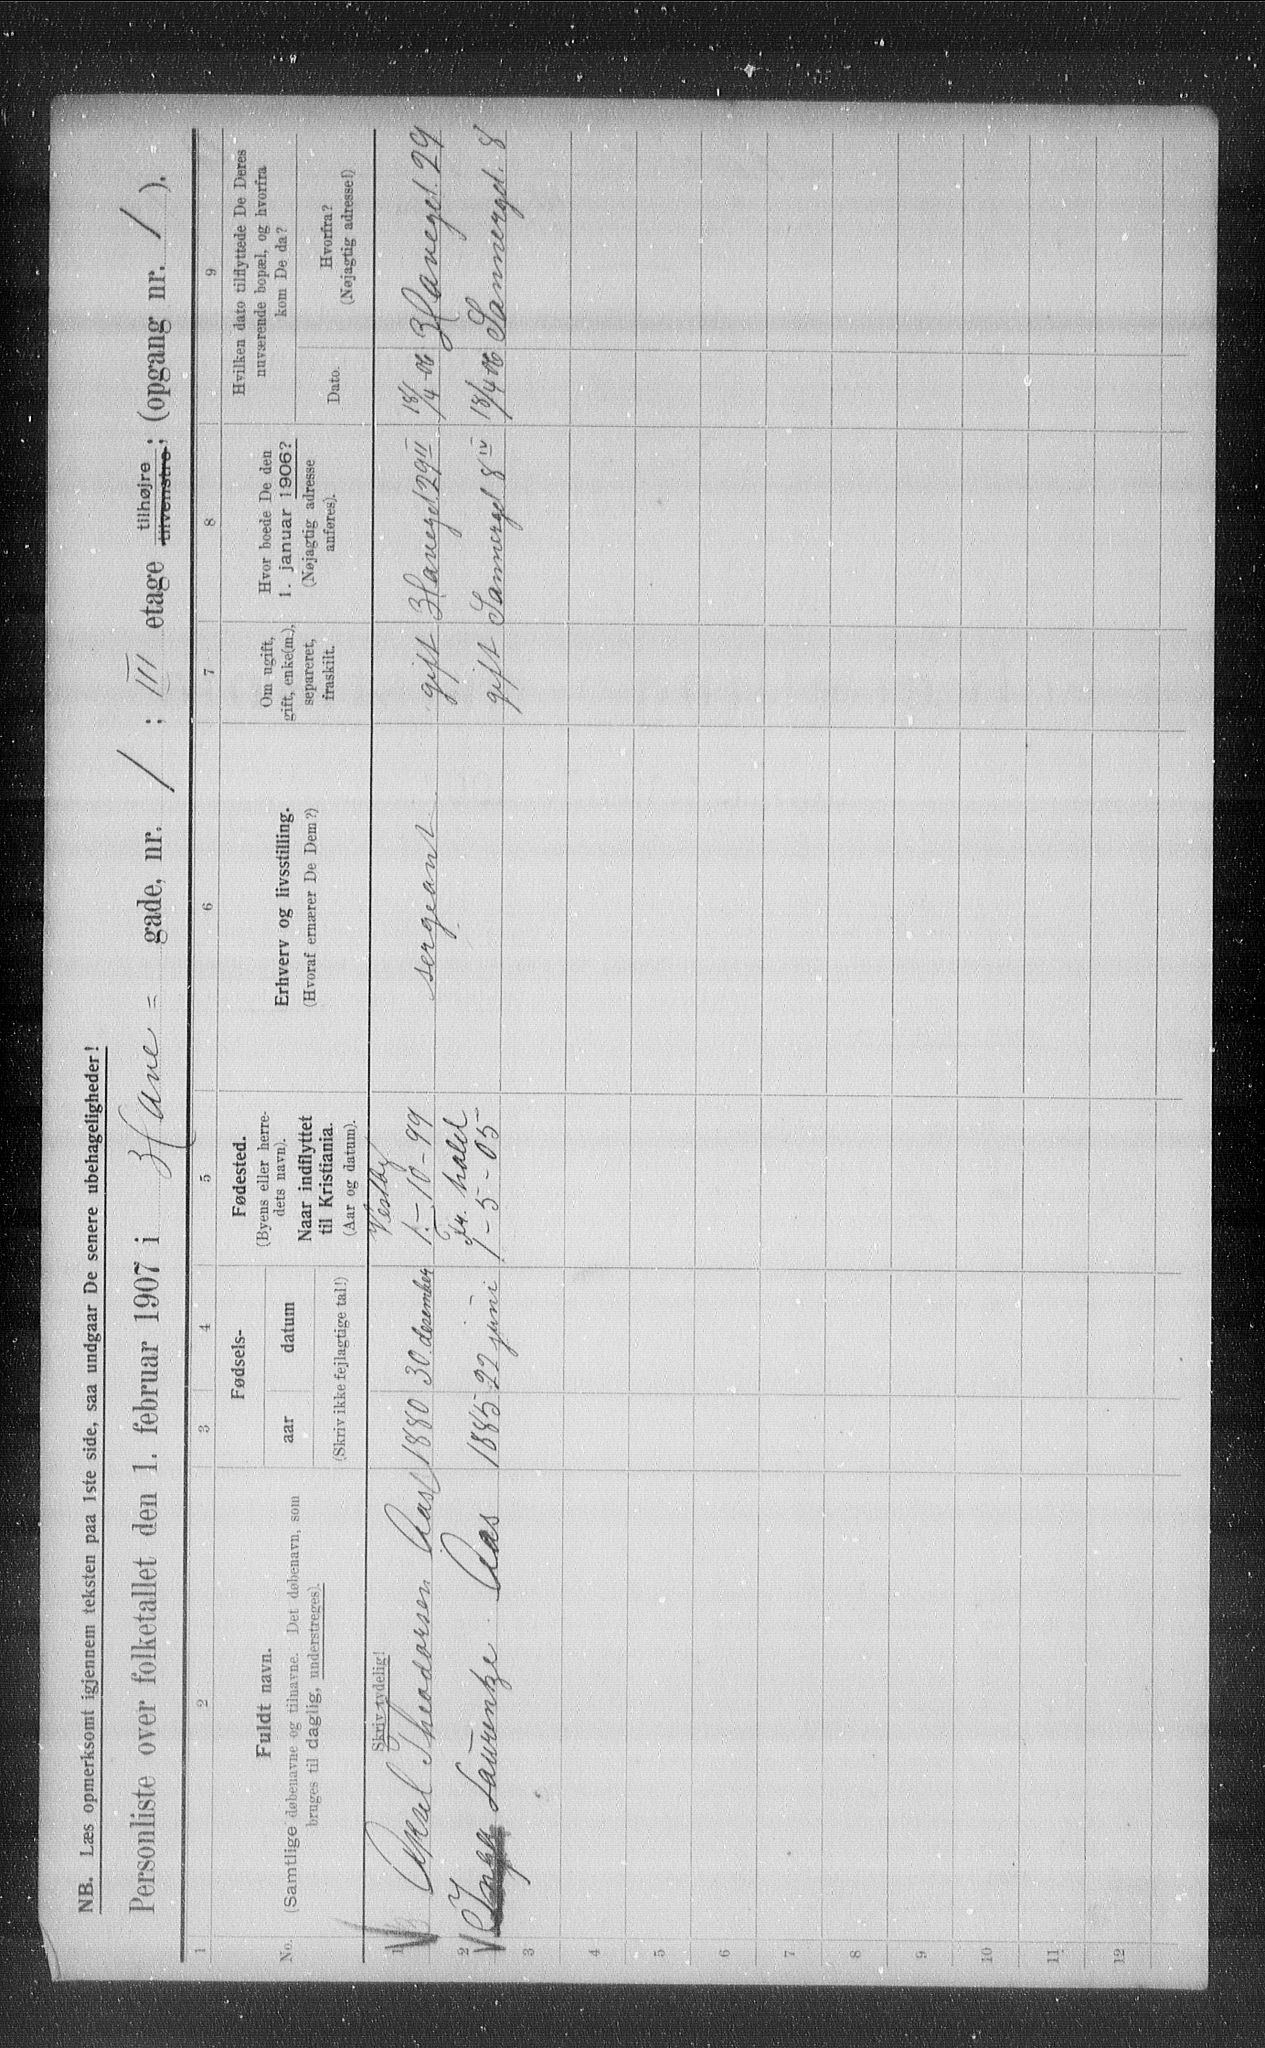 NB. Læs opmerksomt igjennem teksten paa 1ste side, saa undgaar De senere ubehageligheder!
Personliste over folketallet den 1. februar 1907 i Have = gade, nr. 1 ; III etage tilhøjre ~~tilvenstre~~; (opgang nr. 1 ).
1 2 3 4 5 6 7 8 9
No.
Fuldt navn.
(Samtlige døbenavne og tilnavne. Det døbenavn, som
bruges til daglig, understreges).
Fødsels-
aar datum
(Skriv ikke fejlagtige tal!)
Fødested.
(Byens eller herre-
dets navn).
Naar indflyttet
til Kristiania.
(Aar og datum).
Erhverv og livsstilling.
(Hvoraf ernærer De Dem?)
Om ugift,
gift, enke(m.),
separeret,
fraskilt.
Hvor boede De den
1. januar 1906?
(Nøjagtig adresse
anføres).
Hvilken dato tilflyttede De Deres
nuværende bopæl, og hvorfra
kom De da?
Dato.
Hvorfra?
(Nøjagtig adresse!)
Skriv tydelig!
Vestby
1 Aksel Theodorsen Aas 1880 30. desember 1.-10-99 sergeant gift Havegd. 29 II 18/4-06 Havegd. 29
Fr. hald
2 Inga Laurentze Aas 1885 22 juni 1-5-05 gift Sannergd 8 IV 18/4 06 Sannergd. 8
3
4
5
6
7
8
9
10
11
12